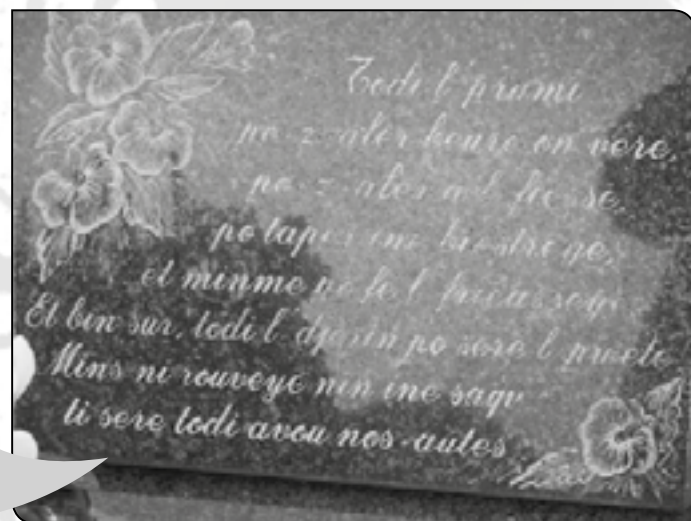 Todi l'prumi
po-z-aler beure on vere,
po-z-aler al fiesse,
po taper ine
et minme po fe l'fricassêye
Et bin sur, todi l'djerin po sere l'pwete
Mins ni rouveye nin ine saqwè
ti sere todi avou nos-autes